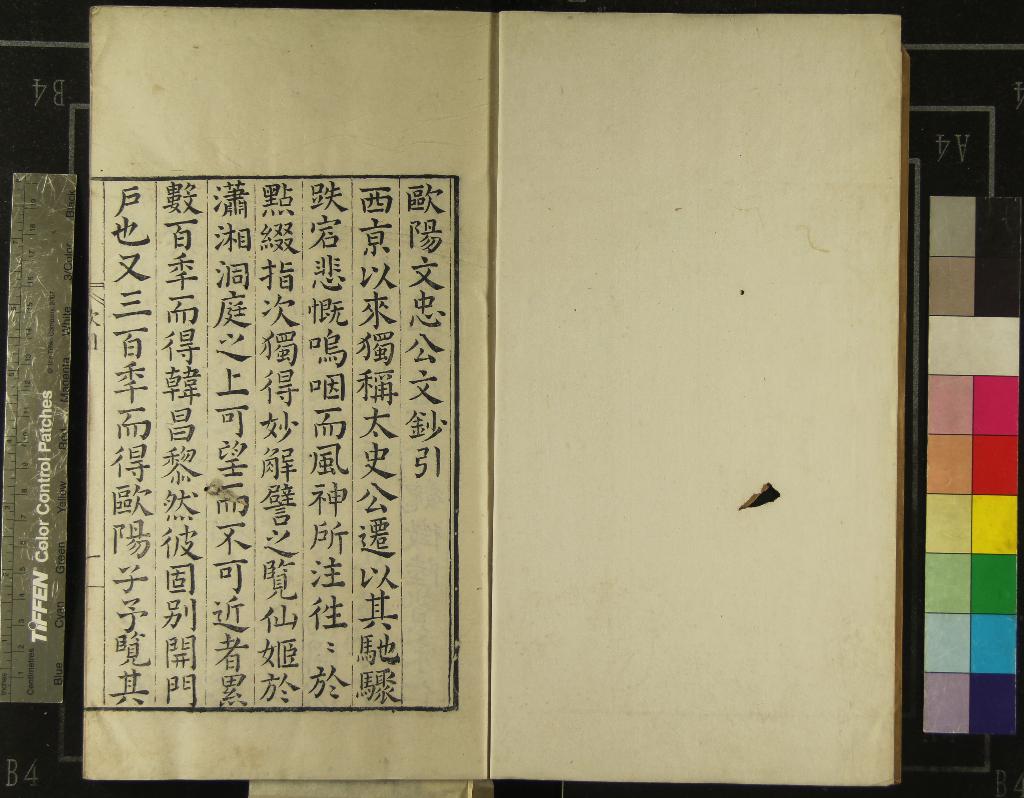 歐陽文忠公文鈔引
西亰以來獨稱太史公遷以其馳驟
跌宕悲慨嗚咽而風神所注徃〻於
點綴指次獨得妙解譬之覽仙姬於
瀟湘洞庭之上可望而不可近者累
數百秊而得韓昌黎然彼固别開門
戶也又三百秊而得歐陽子予覽其
TIFFEN Color Control Patches
Centimetres
Inches
Blue
Cyan
Green
Yellow
Red
Magenta
White
3/Color
Black
B4
A4
B4
B4